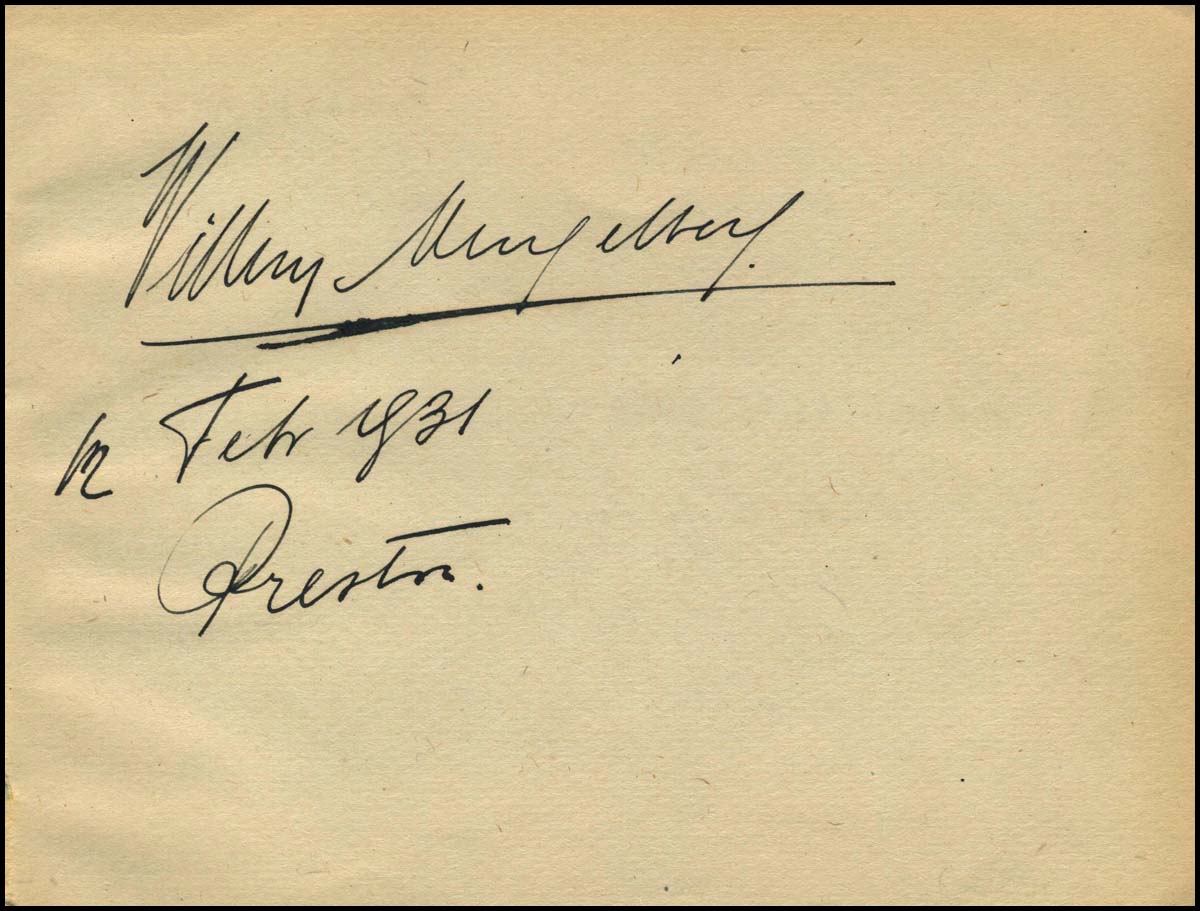 Willem Mengelberg.
12 Febr 1931
Preston.